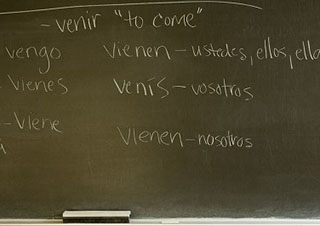 - venir "to come"
vengo vienen - ustedes, ellos, ella
- vienes venís - vosotros
- viene
vienen - nosotros